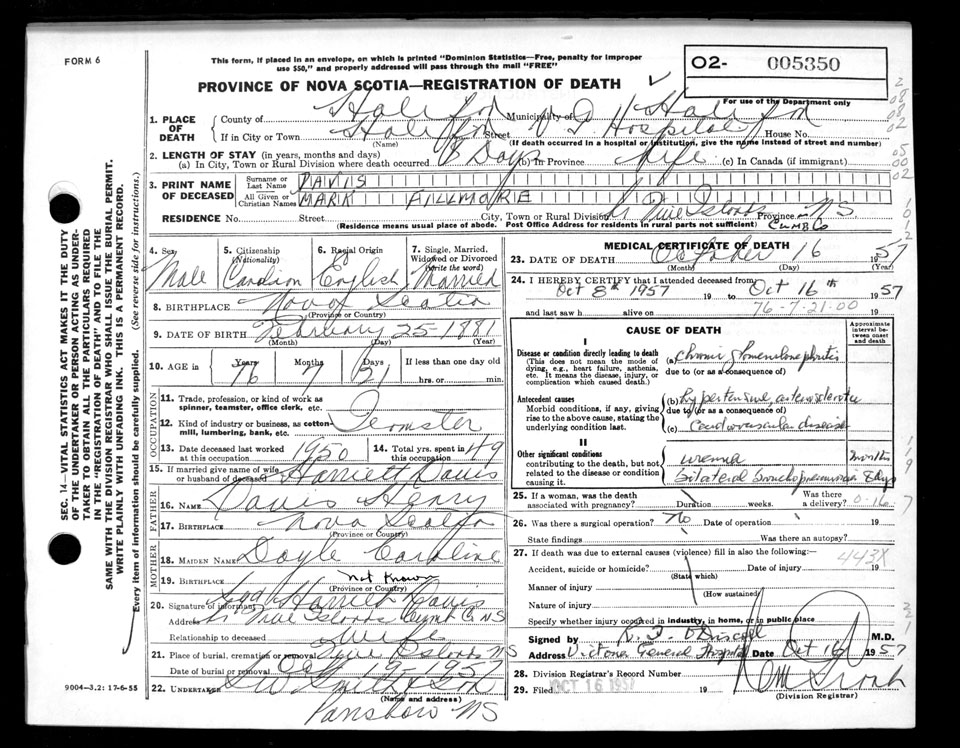 FORM 6
This form, if placed in an envelope, on which is printed "Dominion Statistics—Free, penalty for improper
use $50," and properly addressed will pass through the mail "FREE"
O2- 005350
PROVINCE OF NOVA SCOTIA—REGISTRATION OF DEATH
For use of the Department only
1. PLACE OF DEATH
County of Halifax Municipality of Halifax
If in City or Town Halifax Street V G Hospital House No.
(Name) (If death occurred in a hospital or institution, give the name instead of street and number)
2. LENGTH OF STAY (in years, months and days)
(a) In City, Town or Rural Division where death occurred 8 Days (b) in Province Life (c) In Canada (if immigrant)
3. PRINT NAME OF DECEASED
Surname or Last Name DAVIS
All Given or Christian Names MARK FILLMORE
RESIDENCE No. Street City, Town or Rural Division Five Islands Province NS
(Residence means usual place of abode. Post Office Address for residents in rural parts not sufficient)
4. Sex Male
5. Citizenship (Nationality) Canadian
6. Racial Origin English
7. Single, Married, Widowed or Divorced (write the word) Married
8. BIRTHPLACE Nova Scotia
(Province or Country)
9. DATE OF BIRTH February 25 - 1881
(Month) (Day) (Year)
10. AGE in Years 76 Months 7 Days 21 If less than one day old
hrs. or min.
OCCUPATION
11. Trade, profession, or kind of work as
spinner, teamster, office clerk, etc.
Teamster
12. Kind of industry or business, as cotton-
mill, lumbering, bank, etc.
13. Date deceased last worked
at this occupation 1950
14. Total yrs. spent in
this occupation 49
15. If married give name of wife
or husband of deceased Harriett Davis
FATHER
16. NAME Davis Henry
17. BIRTHPLACE Nova Scotia
(Province or Country)
MOTHER
18. MAIDEN NAME Doyle Caroline
19. BIRTHPLACE Not Known
(Province or Country)
20. Signature of informant Sgd Harriett Davis
Address Five Islands NS
Relationship to deceased Wife
21. Place of burial, cremation or removal Five Islands NS
Date of burial or removal Oct 19 - 1957
22. UNDERTAKER
(Name and address)
NS
9004—3.2: 17-6-55
SEC. 14—VITAL STATISTICS ACT MAKES IT THE DUTY
OF THE UNDERTAKER OR PERSON ACTING AS UNDER-
TAKER TO OBTAIN ALL THE PARTICULARS REQUIRED
IN THE "REGISTRATION OF DEATH" AND TO FILE THE
SAME WITH THE DIVISION REGISTRAR WHO SHALL ISSUE THE BURIAL PERMIT.
WRITE PLAINLY WITH UNFADING INK. THIS IS A PERMANENT RECORD.
Every item of information should be carefully supplied. (See reverse side for instructions.)
MEDICAL CERTIFICATE OF DEATH
23. DATE OF DEATH October 16 1957
(Month) (Day) (Year)
24. I HEREBY CERTIFY that I attended deceased from
Oct 8th 1957 19 to Oct 16th 1957
and last saw h alive on 76-7-21-00 19
CAUSE OF DEATH
Approximate interval between onset and death
I
Disease or condition directly leading to death
(This does not mean the mode of
dying, e.g., heart failure, asthenia,
etc. It means the disease, injury, or
complication which caused death.)
(a) Chronic glomerulonephritis
due to (or as a consequence of)
Antecedent causes
Morbid conditions, if any, giving
rise to the above cause, stating the
underlying condition last.
(b) hypertensive, arteriosclerotic
due to (or as a consequence of)
(c) Cardiovascular disease
II
Other significant conditions
contributing to the death, but not
related to the disease or condition
causing it.
uremia months
bilateral bronchopneumonia
25. If a woman, was the death
associated with pregnancy? Duration weeks. Was there a delivery?
26. Was there a surgical operation? No Date of operation 19
State findings Was there an autopsy?
27. If death was due to external causes (violence) fill in also the following:—
443X
Accident, suicide or homicide? Date of injury 19
(State which)
Manner of injury
(How sustained)
Nature of injury
Specify whether injury occurred in industry, in home, or in public place
Signed by M.D.
Address Victoria General Hospital Date Oct 16 1957
28. Division Registrar's Record Number
29. Filed OCT 16 1957 19
(Division Registrar)